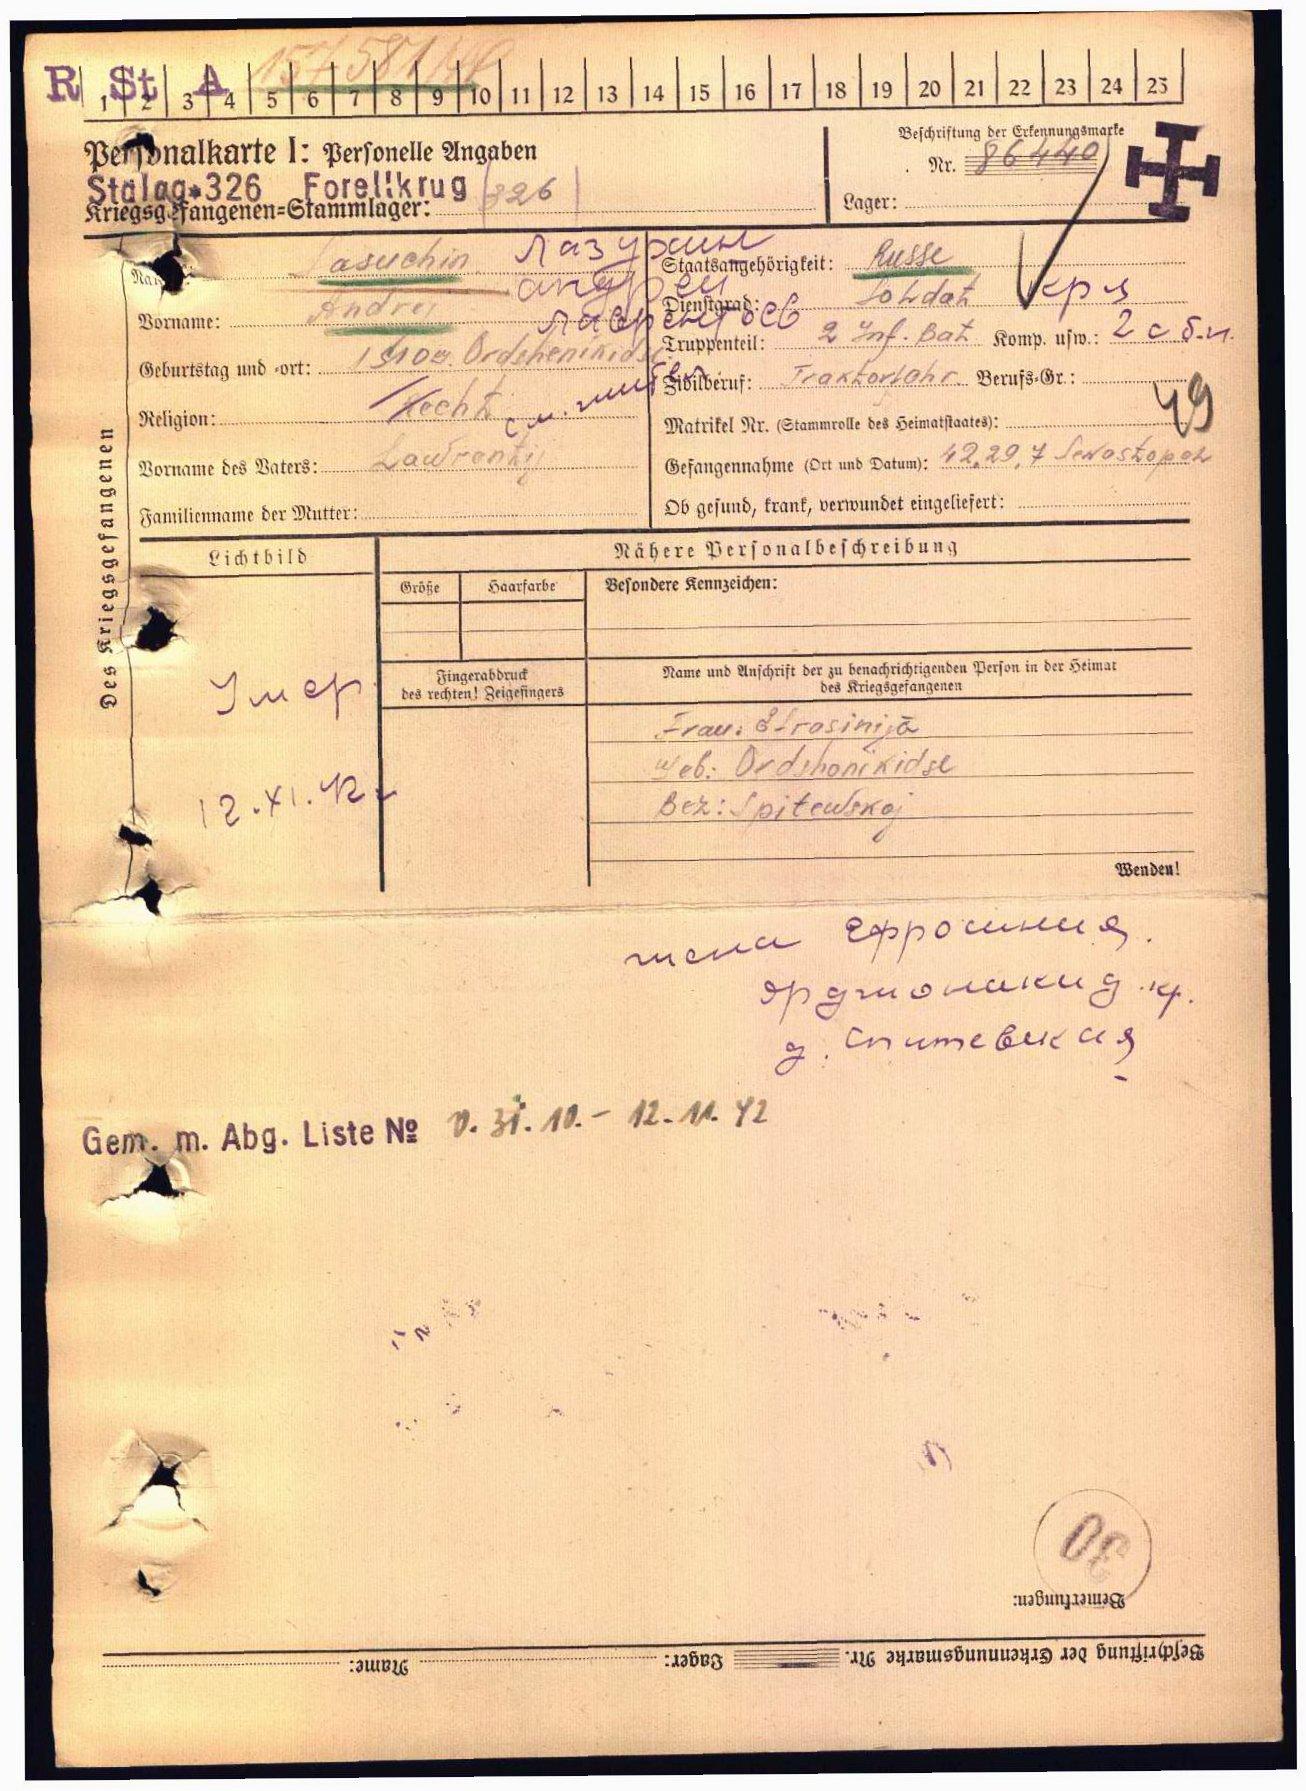 R St A 157581/
1 2 3 4 5 6 7 8 9 10 11 12 13 14 15 16 17 18 19 20 21 22 23 24 25
Beschriftung der Erkennungsmarke
Personalkarte I: Personelle Angaben
Nr. 86440
Stalag 326 Forellkrug 326
Kriegsgefangenen-Stammlager:
Lager:
Name: Lasuchin Лазухин
Staatsangehörigkeit: Russe
Vorname: Andrej андрей
Dienstgrad: Soldat кр-ц
Лаврентьев
Truppenteil: 2 Inf. Bat Komp. usw.: 2 с б.и.
Geburtstag und -ort: Ordshenikidse
Zivilberuf: Traktorfahr Berufs-Gr.:
49
Religion:
Matrikel Nr. (Stammrolle des Heimatstaates):
Vorname des Vaters: Lawrentij
Gefangennahme (Ort und Datum): 42.29.7 Sewastopol
Familienname der Mutter:
Ob gesund, krank, verwundet eingeliefert:
Des Kriegsgefangenen
Lichtbild
Nähere Personalbeschreibung
Größe Haarfarbe Besondere Kennzeichen:
Fingerabdruck
des rechten! Zeigefingers
Name und Anschrift der zu benachrichtigenden Person in der Heimat
des Kriegsgefangenen
Умер
12.XI.42 г
Frau: Efrosinija
Geb: Ordshonikidse
Bez: Spitewskoj
Wenden!
жена Ефросиния.
Орджоникид. кр.
д. Спитевская
Gem. m. Abg. Liste № v. 31.10. - 12.11.42
30
Bemerkungen:
Beschriftung der Erkennungsmarke Nr. Lager: Name: